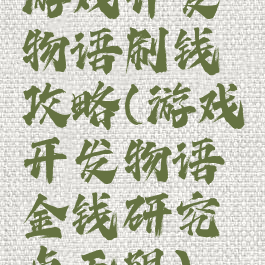 游戏开发
物语刷钱
攻略(游戏
开发物语
金钱研究